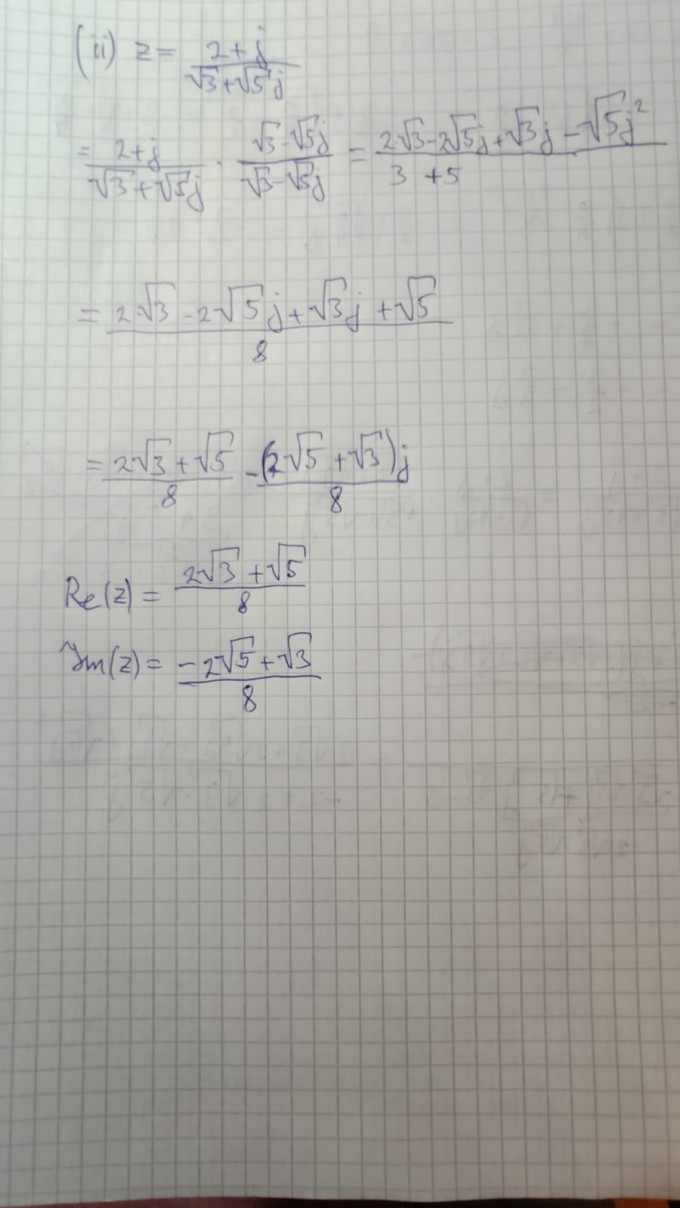 (ii) z = (2+j)/(√3+√5j)
= (2+j)/(√3+√5j) · (√3-√5j)/(√3-√5j) = (2√3-2√5j+√3j-√5j²)/(3+5)
= (2√3-2√5j+√3j+√5)/8
= (2√3+√5)/8 - (2√5+√3)j/8
Re(z) = (2√3+√5)/8
Im(z) = (-2√5+√3)/8